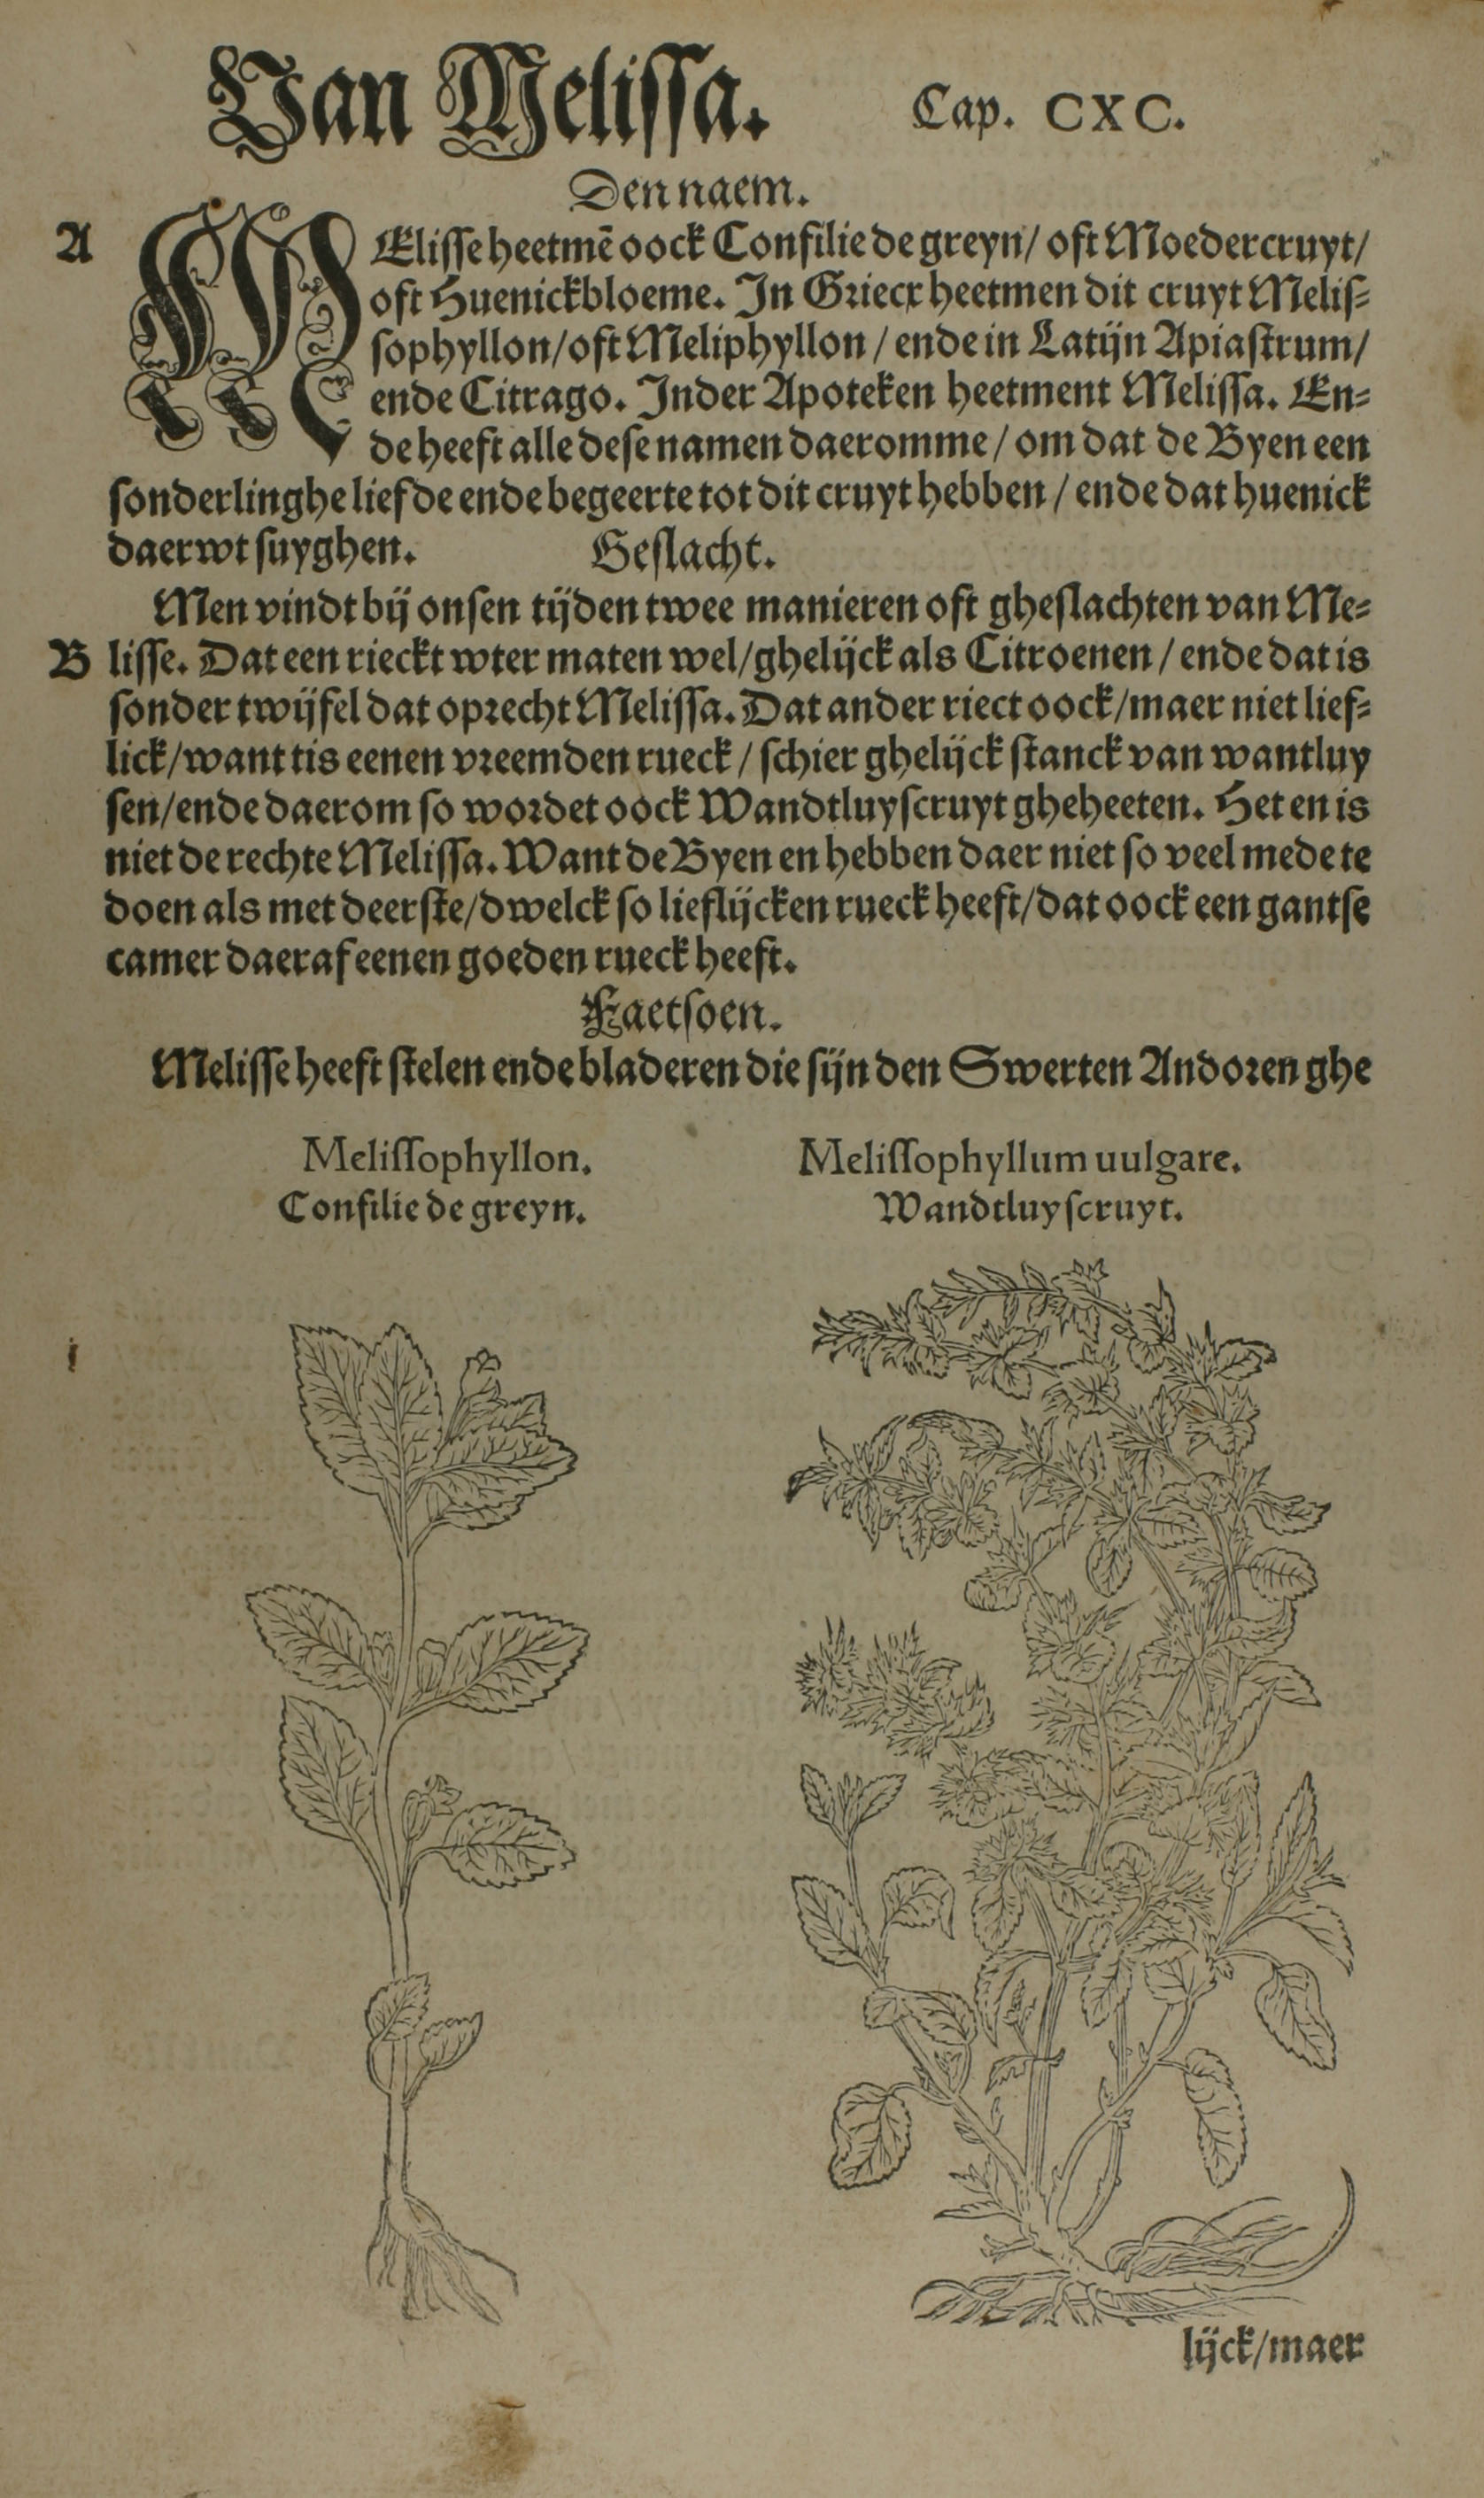 Van Melissa. Cap. CXC.
Den naem.
A MElisse heetmē oock Confilie de greyn/ oft Moedercruyt/
oft Huenickbloeme. In Griecx heetmen dit cruyt Melis-
sophyllon/oft Meliphyllon / ende in Latijn Apiastrum/
ende Citrago. Inder Apoteken heetment Melissa. En-
de heeft alle dese namen daeromme / om dat de Byen een
sonderlinghe liefde ende begeerte tot dit cruyt hebben / ende dat huenick
daerwt suyghen. Geslacht.
Men vindt bij onsen tijden twee manieren oft gheslachten van Me-
B lisse. Dat een rieckt wter maten wel/ghelijck als Citroenen / ende dat is
sonder twijfel dat oprecht Melissa. Dat ander riect oock/maer niet lief-
lick/want tis eenen vreemden rueck / schier ghelijck stanck van wantluy
sen/ende daerom so wordet oock Wandtluyscruyt gheheeten. Het en is
niet de rechte Melissa. Want de Byen en hebben daer niet so veel mede te
doen als met deerste/dwelck so lieflijcken rueck heeft/dat oock een gantse
camer daeraf eenen goeden rueck heeft.
Faetsoen.
Melisse heeft stelen ende bladeren die sijn den Swerten Andoren ghe
Melissophyllon. Melissophyllum uulgare.
Confilie de greyn. Wandtluyscruyt.
lijck/maer